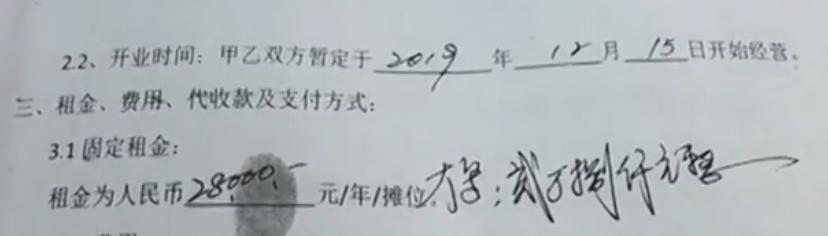 2.2、开业时间：甲乙双方暂定于 2019 年 12 月 15 日开始经营。
三、租金、费用、代收款及支付方式：
3.1 固定租金：
租金为人民币 28000.- 元/年/摊位。大写：贰万捌仟元整